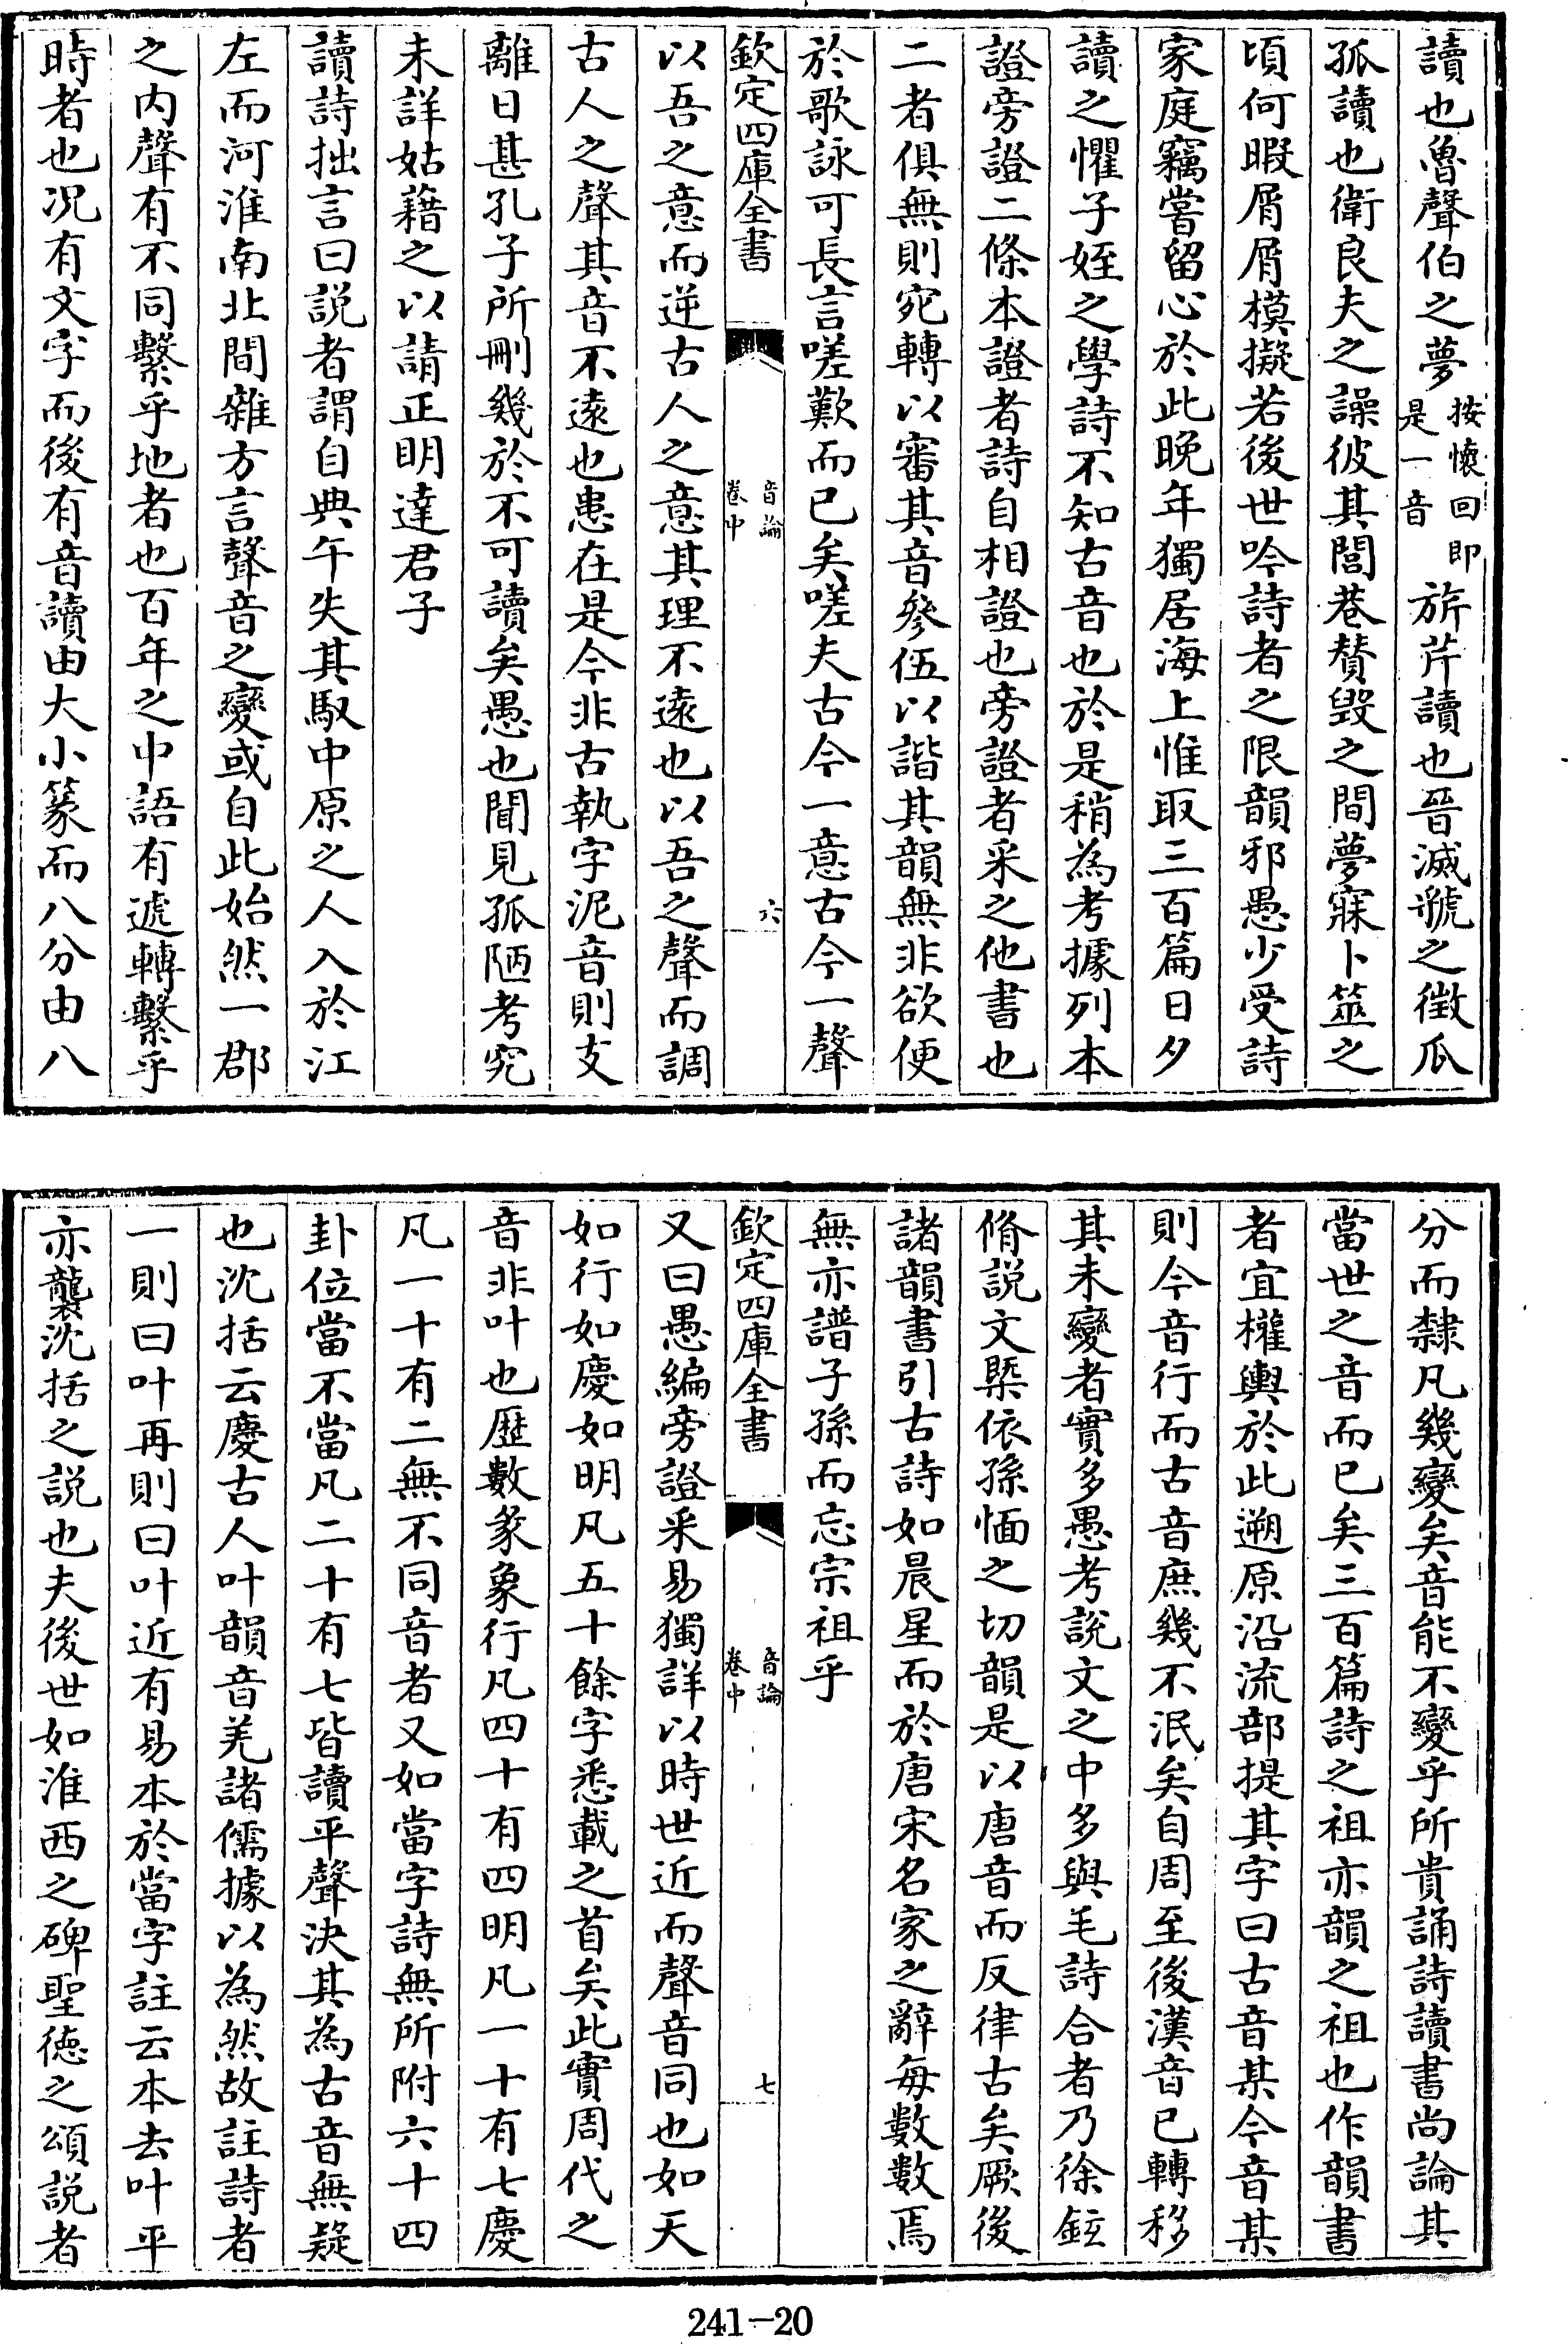 讀也魯聲伯之夢按懷回即是一音旂芹讀也晉滅虢之徴瓜
孤讀也衛良夫之譟彼其閭巷賛毁之間夢寐卜筮之
頃何暇屑屑模擬若後世吟詩者之限韻邪愚少受詩
家庭竊嘗留心於此晩年獨居海上惟取三百篇日夕
讀之懼子姪之學詩不知古音也於是稍為考據列本
證旁證二條本證者詩自相證也旁證者采之他書也
二者俱無則宛轉以審其音參伍以諧其韻無非欲便
於歌詠可長言嗟歎而已矣嗟夫古今一意古今一聲
欽定四庫全書
音論
卷中
六
以吾之意而逆古人之意其理不遠也以吾之聲而調
古人之聲其音不遠也患在是今非古執字泥音則支
離日甚孔子所刪幾於不可讀矣愚也聞見孤陋考究
未詳姑藉之以請正明達君子
讀詩拙言曰説者謂自典午失其馭中原之人入於江
左而河淮南北間雜方言聲音之變或自此始然一郡
之内聲有不同繫乎地者也百年之中語有遞轉繫乎
時者也况有文字而後有音讀由大小篆而八分由八
分而隸凡幾變矣音能不變乎所貴誦詩讀書尚論其
當世之音而已矣三百篇詩之祖亦韻之祖也作韻書
者宜權輿於此遡原沿流部提其字曰古音某今音某
則今音行而古音庶幾不泯矣自周至後漢音已轉移
其未變者實多愚考説文之中多與毛詩合者乃徐鉉
脩説文槩依孫愐之切韻是以唐音而反律古矣厥後
諸韻書引古詩如晨星而於唐宋名家之辭每數數焉
無亦譜子孫而忘宗祖乎
欽定四庫全書
音論
卷中
七
又曰愚編旁證采易獨詳以時世近而聲音同也如天
如行如慶如明凡五十餘字悉載之首矣此實周代之
音非叶也歴數彖象行凡四十有四明凡一十有七慶
凡一十有二無不同音者又如當字詩無所附六十四
卦位當不當凡二十有七皆讀平聲決其為古音無疑
也沈括云慶古人叶韻音羌諸儒據以為然故註詩者
一則曰叶再則曰叶近有易本於當字註云本去叶平
亦襲沈括之説也夫後世如淮西之碑聖徳之頌説者
241-20